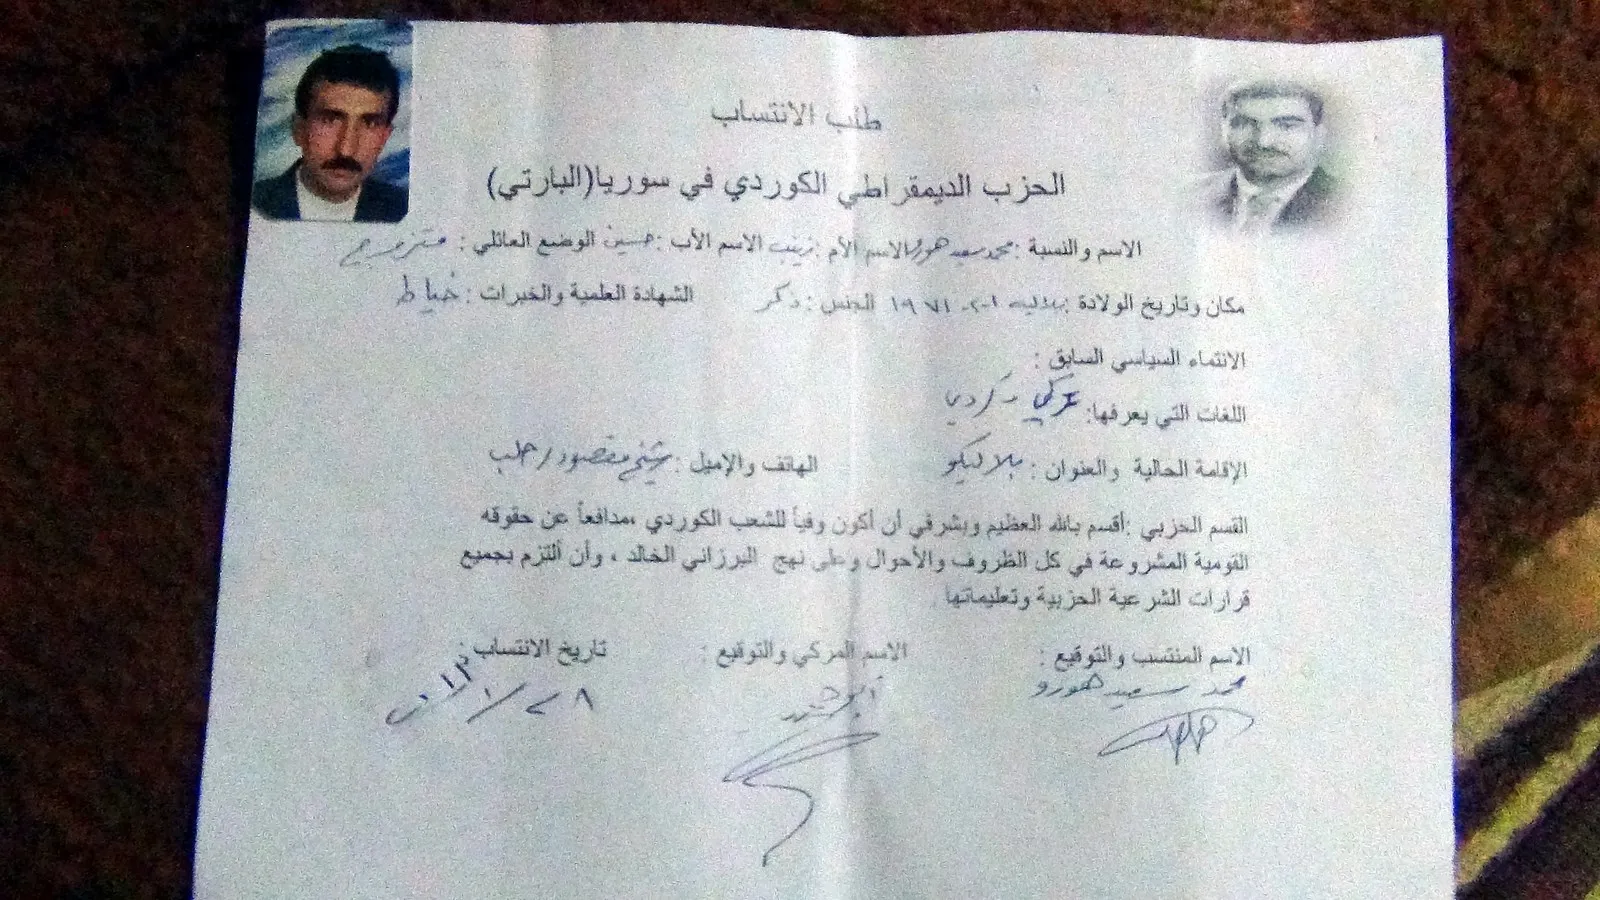 طلب الانتساب
الحزب الديمقراطي الكوردي في سوريا(البارتي)
الاسم والنسبة : محمد سعيد هورو الاسم الأم : زينب الاسم الأب : حسين الوضع العائلي : متزوج
مكان وتاريخ الولادة ١٩٧١ الجنس : ذكر الشهادة العلمية والخبرات : خياط
الانتماء السياسي السابق :
اللغات التي يعرفها: عربي و كردي
الإقامة الحالية والعنوان : بلاليكو الهاتف والإميل : شيخ مقصود / حلب
القسم الحزبي : أقسم بالله العظيم وبشرفي أن أكون وفياً للشعب الكوردي ،مدافعاً عن حقوقه
القومية المشروعة في كل الظروف والأحوال وعلى نهج البرزاني الخالد ، وأن ألتزم بجميع
قرارات الشرعية الحزبية وتعليماتها .
الاسم المنتسب والتوقيع : الاسم المركي والتوقيع : تاريخ الانتساب :
محمد سعيد هورو